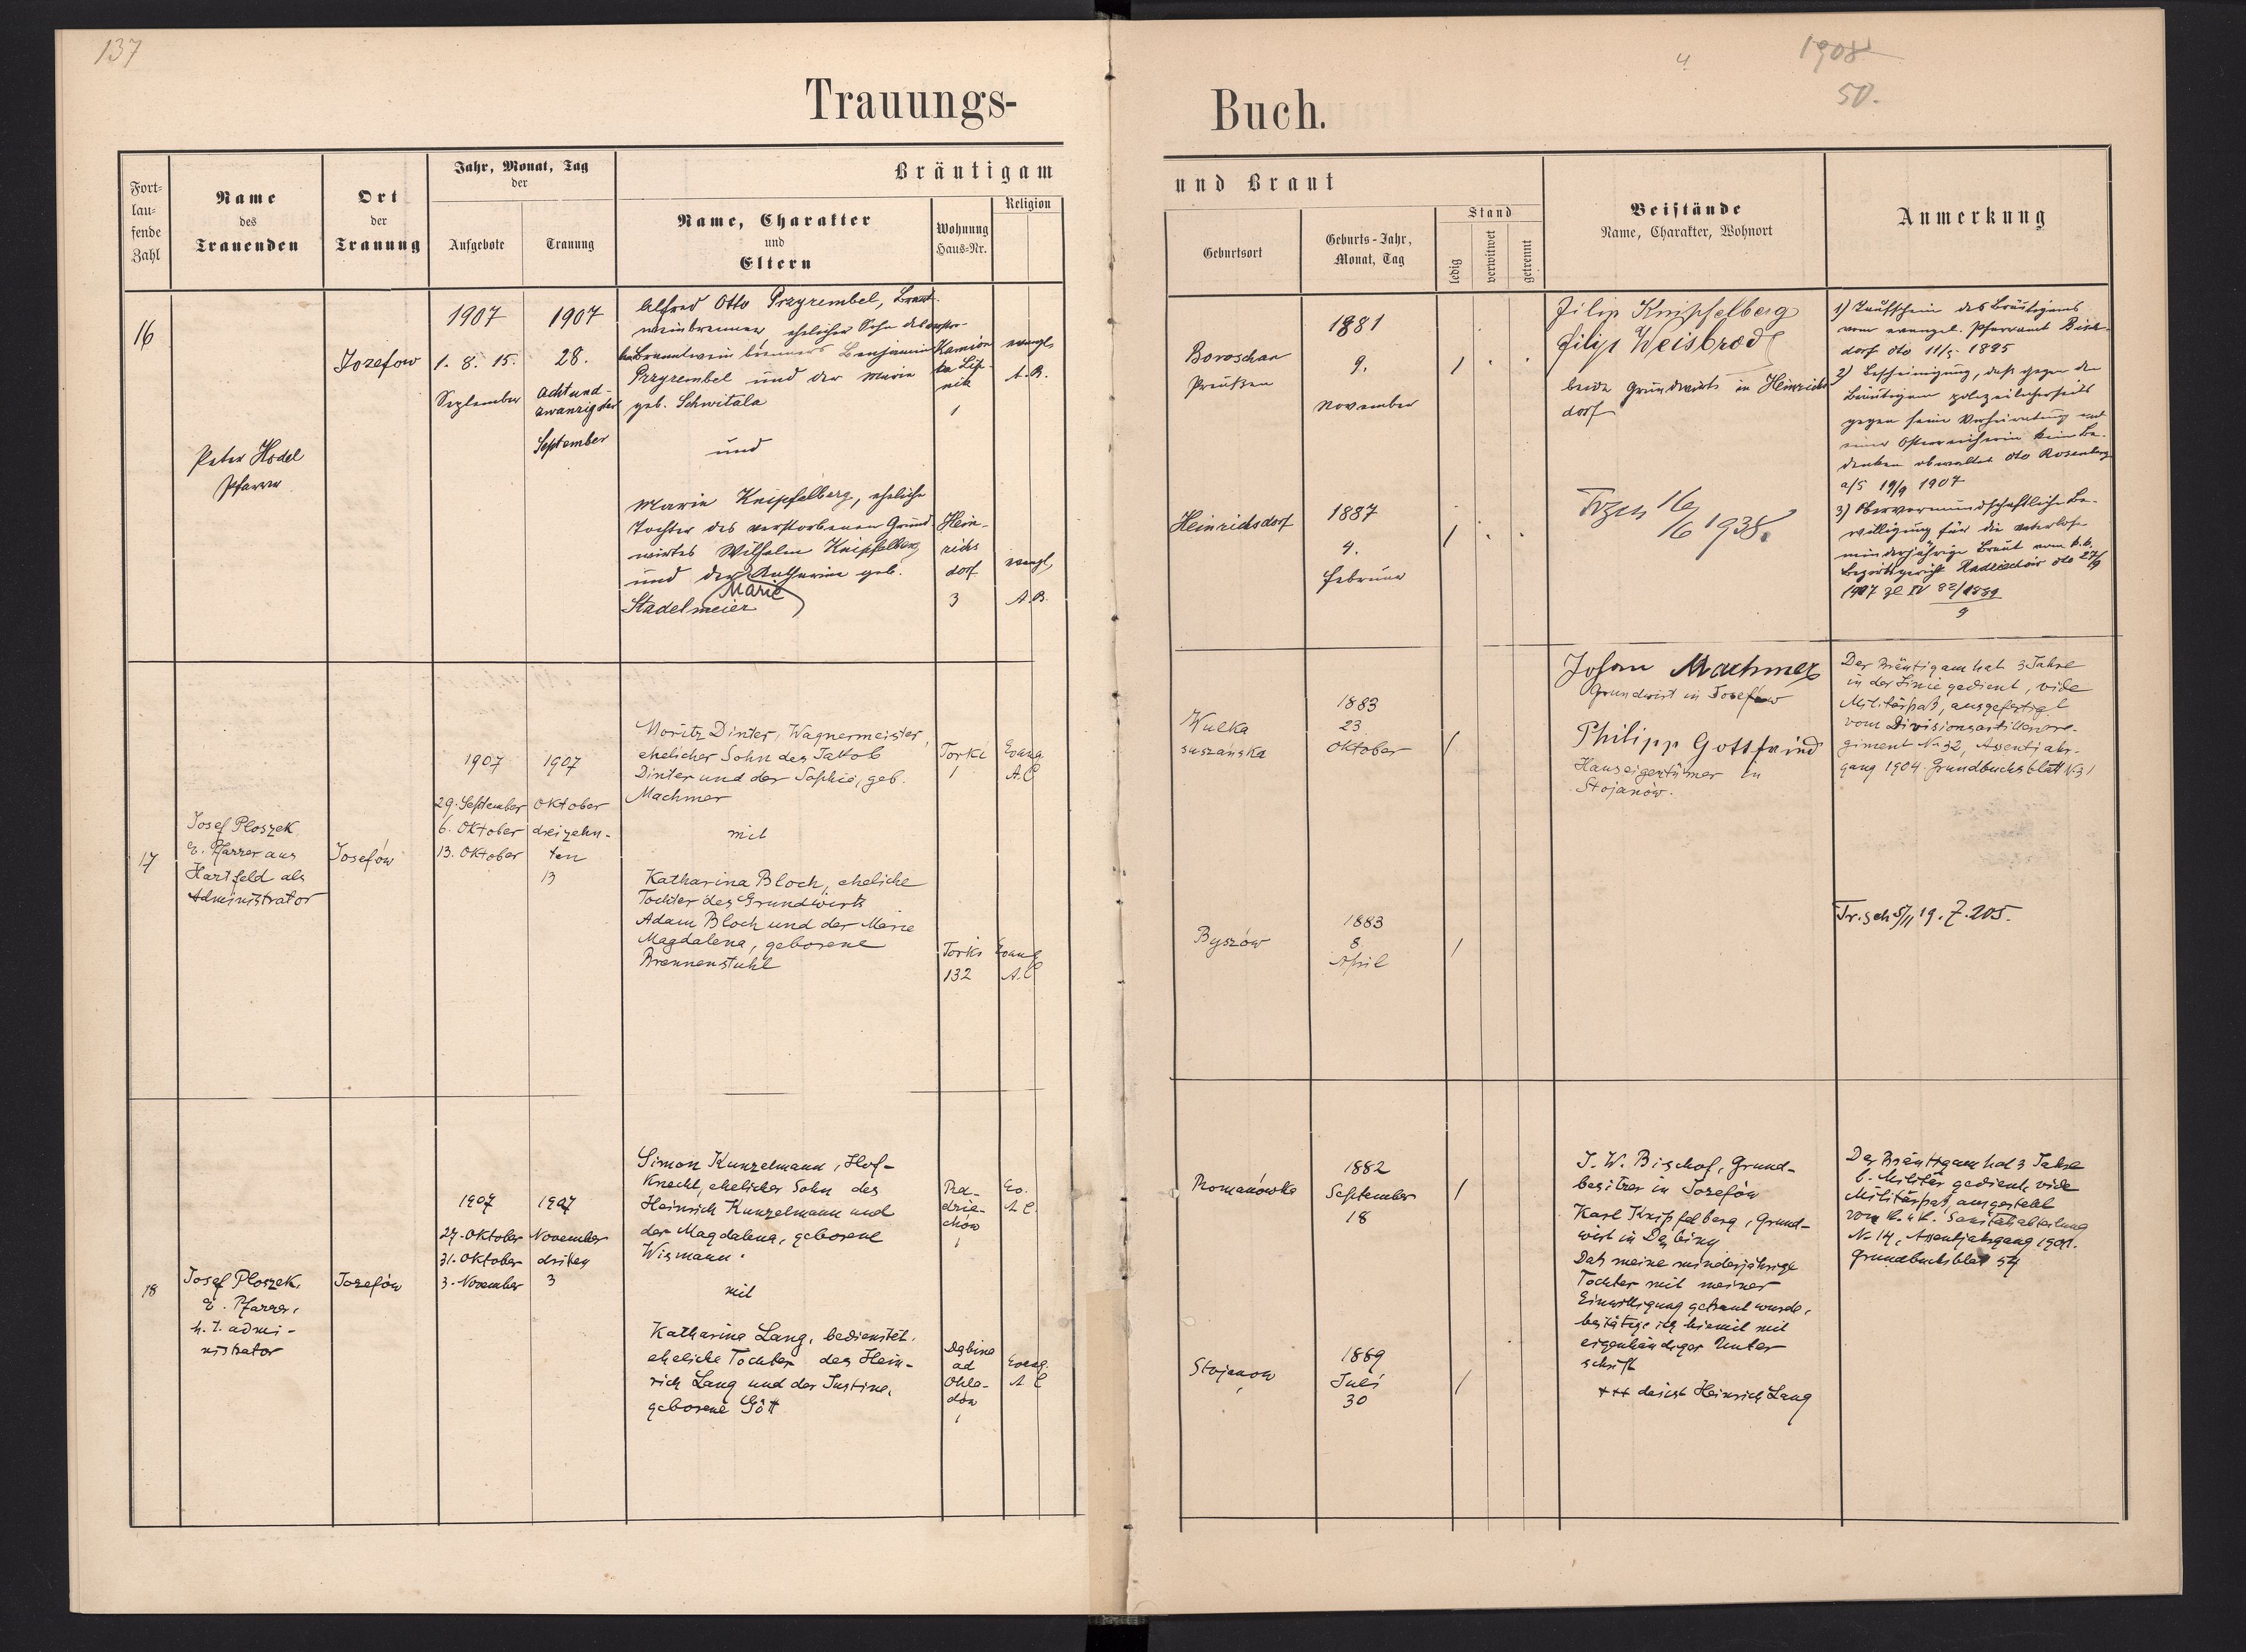 137
1908
50.
Trauungs-
Buch.
Fort-
lau-
fende
Zahl
Name
des
Trauenden
Ort
der
Trauung
Jahr, Monat, Tag
der
Aufgebote
Trauung
Bräutigam
Name, Charakter
und
Eltern
Wohnung
Haus-Nr.
Religion
und Braut
Geburtsort
Geburts-Jahr,
Monat, Tag
Stand
ledig
verwitwet
getrennt
Beistände
Name, Charakter, Wohnort
Anmerkung
16
Peter Hodel
Pfarrer
Jozefow
1907
1. 8. 15.
September
1907
28.
Achtund-
zwanzigster
September
Alfred Otto Przyrembel, Brannt-
weinbrenner ehelicher Sohn des verstor-
Branntweinbrenners Benjamin
Przyrembel und der Marie
geb. Schwitala
und
Marie Knipfelberg, eheliche
Tochter des verstorbenen Grund-
wirtes Wilhelm Knipfelberg
und der Katharine geb.
Marie
Stadelmeier
Kamion
ka Lip-
nik
1
evangl.
A. B.
Hein-
richs
dorf
3
evangl.
A. B.
Boroschau
Preußen
1881
9.
November
Heinrichsdorf
1887
4.
Februar
Filip Knipfelberg
Filip Weisbrod
beide Grundwirte in Heinrichs
dorf
1938.
1) Taufschein des Bräutigams
vom evangel. Pfarramt Bisch-
dorf dto 11/5. 1895
2) Bescheinigung, daß gegen den
Bräutigam polizeilicherseits
gegen seine Verheiratung mit
einer Österreicherin kein Be-
denken obwaltet dto Rosenberg
a/S 19/9 1907
3) Obervormundschaftliche Be-
willigung für die vaterlose
minderjährige Braut vom k. k.
Bezirksgericht Radziechów dto 27/9
1907
17
Josef Ploszek
E. Pfarrer aus
Hartfeld als
Administrator
Josefów
1907
29. September
6. Oktober
13. Oktober
1907
Oktober
dreizehn-
ten
13
Moritz Dinter, Wagnermeister,
ehelicher Sohn des Jakob
Dinter und der Sophie, geb.
Machmer
mit
Katharina Bloch, eheliche
Tochter des Grundwirts
Adam Bloch und der Marie
Magdalena, geborene
Brennenstuhl
Torki
1
Evang
A. C
Torki
132
Evang
A. C
Wulka
suszańska
1883
23
Oktober
Byszów
1883
8
April
Johan Machmer
Grundwirt in Josefów
Philipp Gottfried
Hauseigentümer in
Stojanów.
Der Bräutigam hat 3 Jahre
in der Linie gedient, vide
Militärpaß, ausgefertigt
vom Divisionsartillerire-
giment No 32, Assentjahr-
gang 1904. Grundbuchsblatt N 31
Tr. sch 5/11 19. Z. 205.
18
Josef Ploszek,
E. Pfarrer,
h. t. admi-
nistrator
Jozefów
1907
27. Oktober
31. Oktober
3. November
1907
November
dritten
3
Simon Kunzelmann, Hof-
Knecht, ehelicher Sohn des
Heinrich Kunzelmann und
der Magdalena, geborene
Wismann.
mit
Katharina Lang, bedienstet,
eheliche Tochter des Hein-
rich Lang und der Justine,
geborene Gött
Ra-
dzie-
chów
1
Ev.
A C.
Dębina
ad
Ohla-
dów
1
Evang.
A C
Romanówka
1882
September
18
Stojanow
1889
Juli
30
J. W. Bischof, Grund-
besitzer in Jozefów
Karl Knipfelberg, Grund-
wirt in Dębiny
Daß meine minderjährige
Tochter mit meiner
Einwilligung getraut wurde,
bestätige ich hiemit mit
eigenhändiger Unter
schrift
+++ das ist Heinrich Lang
Der Bräutigam hat 3 Jahre
b. Militär gedient, vide
Militärpaß, ausgestellt
vom k. u k. Sanitätsabteilung
No 14, Assentjahrgang 1901.
Grundbuchsblat 54